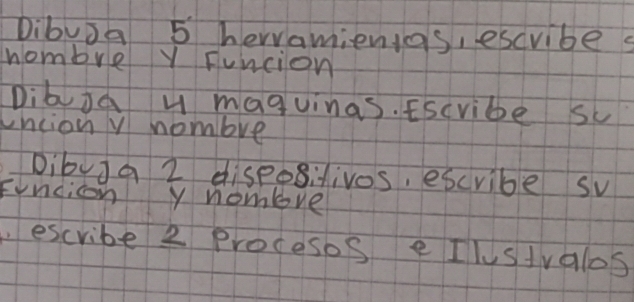 Dibuja 5 herramientas, escribe s
nombre y Funcion
Dibuja 4 maquinas. Escribe su
uncion y nombre
Dibuja 2 dispositivos. escribe su
Funcion y nombre
. escribe 2 Procesos e Ilustralos